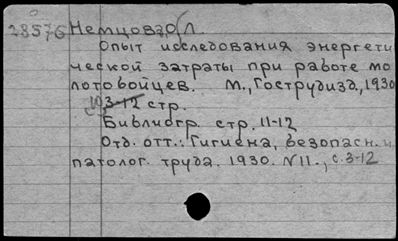 28576 Немцова О. Л.
Опыт исследования энергети
ческой затраты при работе мо
лотобойцев. М., Гострудизд, 1930
10 3-12 стр.
Библиогр. стр. 11-12
Отд. отт.: Гигиена, безопасн. и
патолог. труда. 1930. N11., с. 3-12